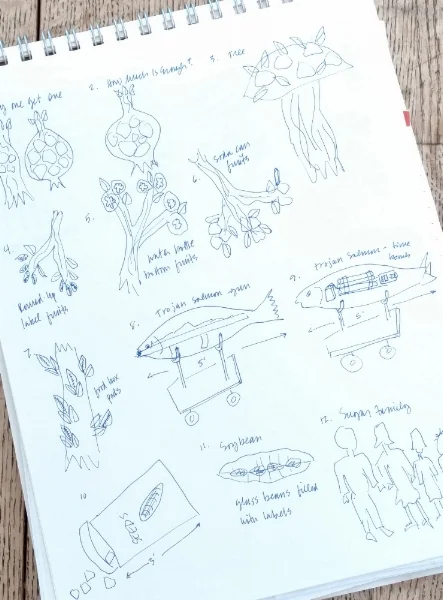 me get one
2. How much is enough?
3. Tree
4.
Round Up
label fruits
5.
water bottle
bottom fruits
6.
soda can
fruits
7.
seed box
pods
8. Trojan salmon - gun
5'
9. Trojan salmon - time
bomb
5'
10
SEEDS
5'
11. Soybean
glass beans filled
with labels
12. Sugar Family